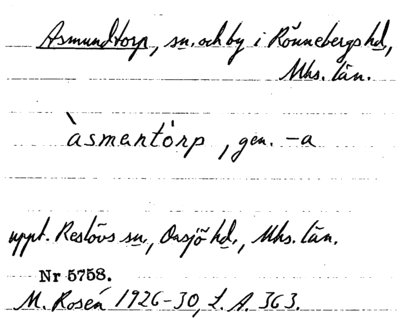 Asmundtorp, sn. och by i Rönnebergs hd,
Mhs. län.
àsmantó̀rp, gen. -a
uppt. Reslövs sn, Onsjö hd., Mhs. län.
Nr 5758.
M. Rosén 1926-30, L. A. 363.